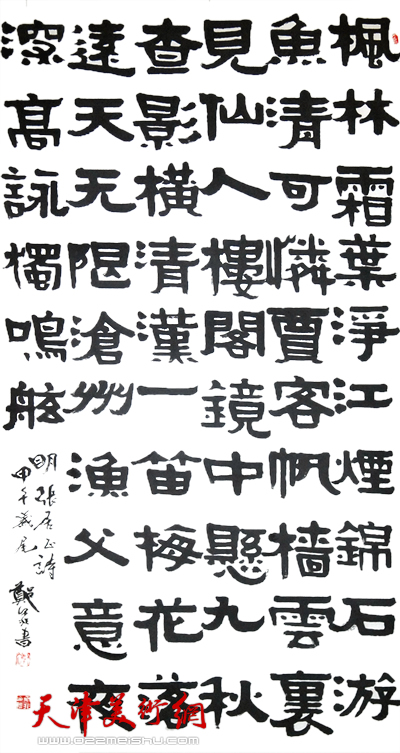 楓林霜葉淨江煙錦石游
魚清可憐賈客帆檣雲裏
見仙人樓閣鏡中懸九秋
查影橫清漢一笛梅花落
遠天无限滄州漁父意夜
深高詠獨鳴舷
明張居正詩
甲午歲尾
鄭 書
天津美術網
www.022meishu.com